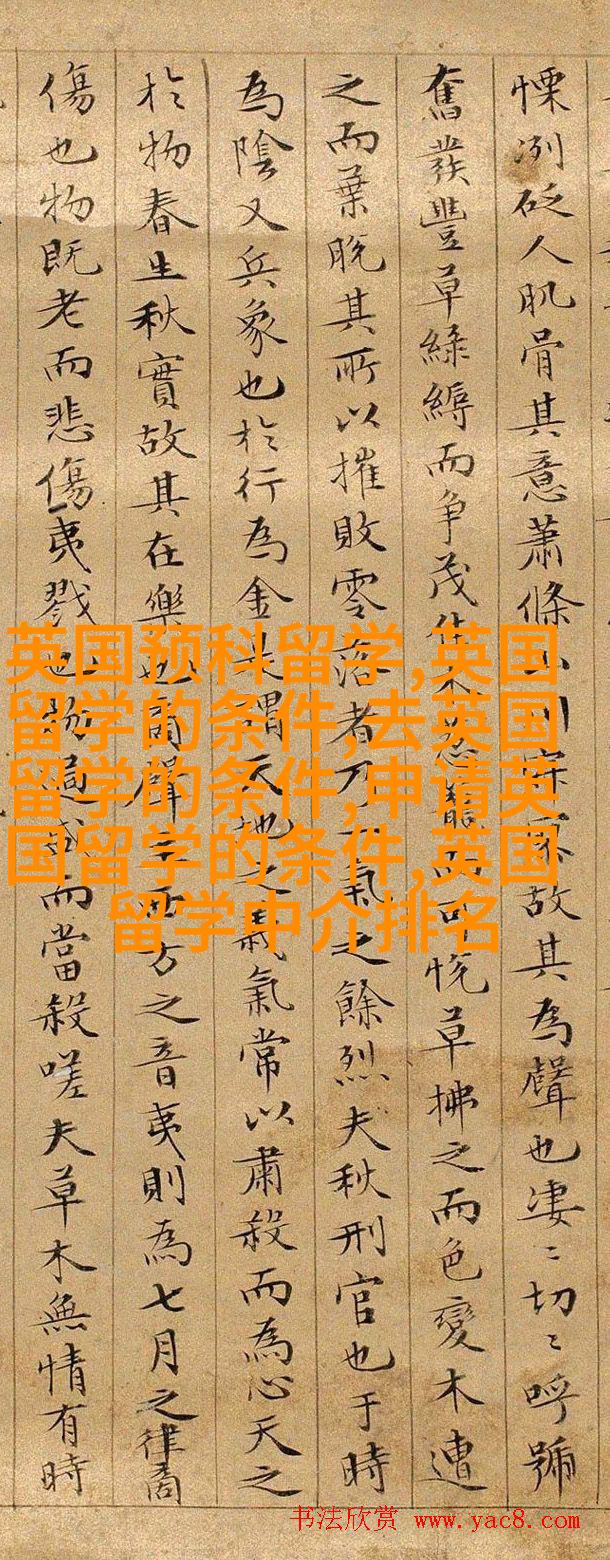 慄冽砭人肌骨其意蕭條山川寂寥故其為聲也淒〻切〻呼號
奮發豐草綠縟而爭茂佳木蔥蘢而可悅草拂之而色變木遭
之而葉脫其所以摧敗零落者乃一氣之餘烈夫秋刑官也于時
為陰又兵象也於行為金是謂天地之義氣常以肅殺而為心天之
於物春生秋實故其在樂也商聲主西方之音夷則為七月之律商
傷也物既老而悲傷夷戮也物過盛而當殺嗟夫草木無情有時
英国预科留学,英国
留学的条件,去英国
留学的条件,申请英
国留学的条件,英国
留学中介排名
书法欣赏 www.yac8.com